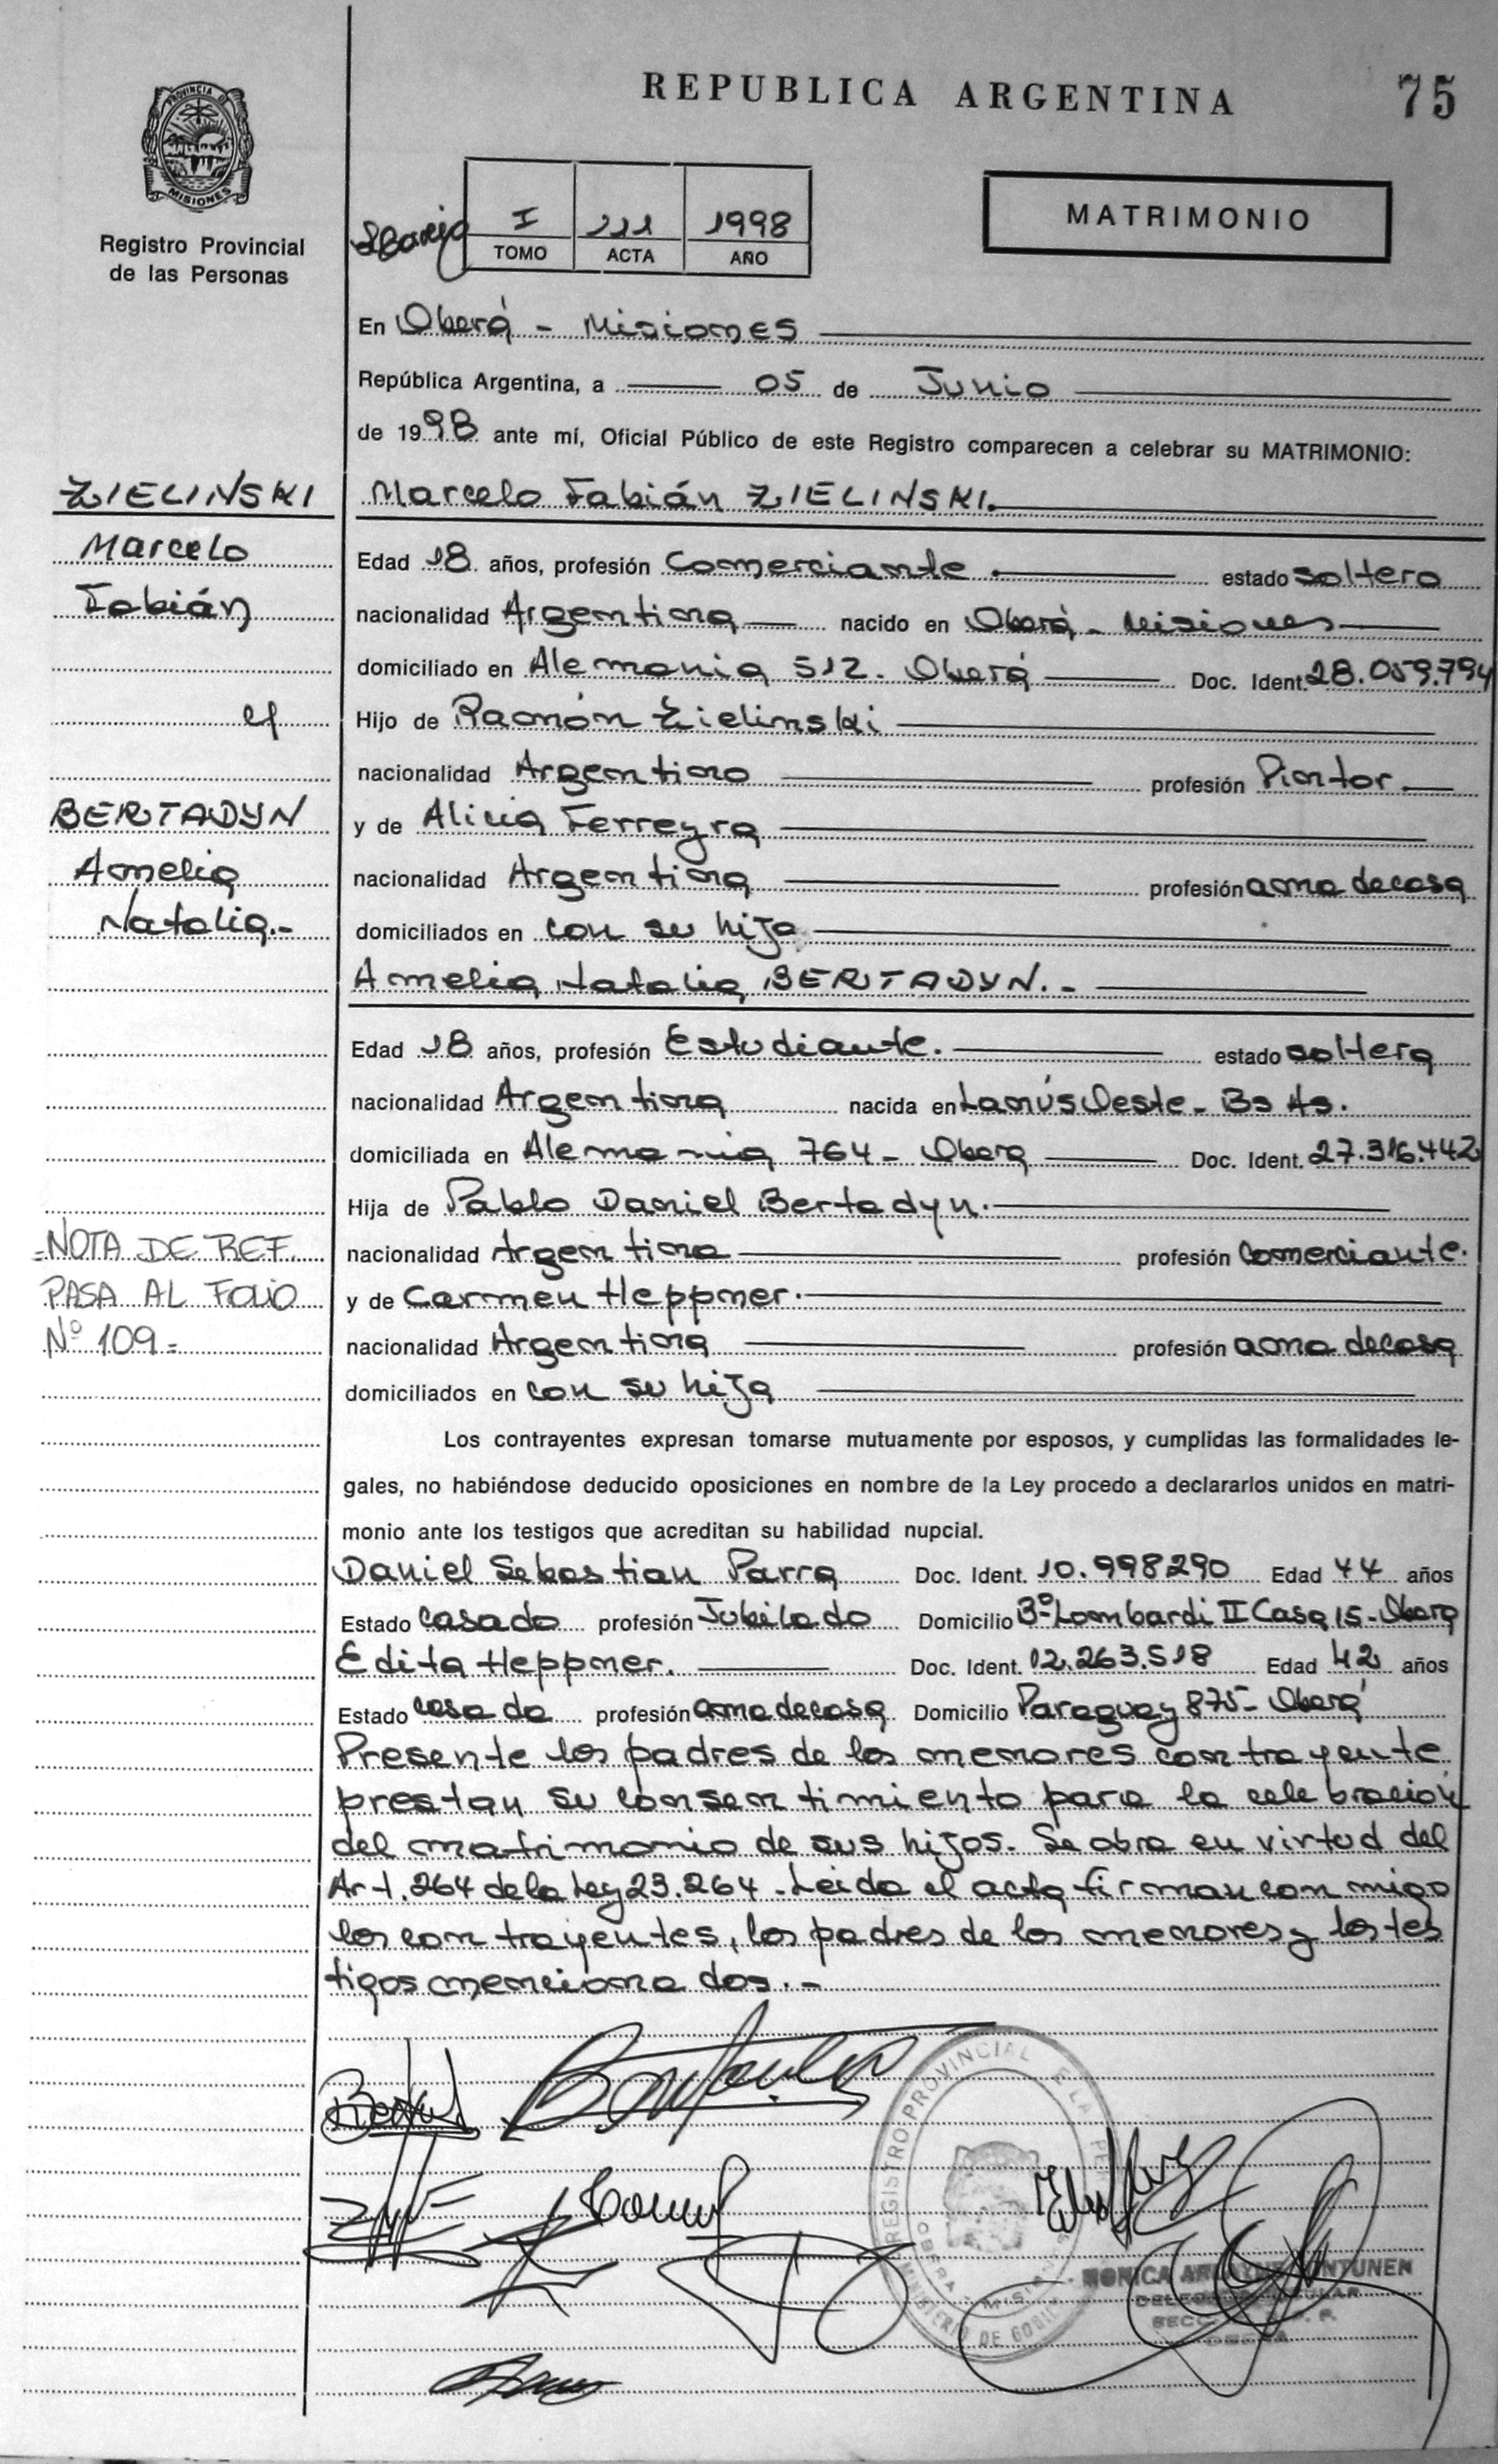 REPUBLICA ARGENTINA
75
PROVINCIA D
MISIONES
Registro Provincial
de las Personas
I 111 1998
TOMO ACTA AÑO
MATRIMONIO
En Oberá - Misiones
República Argentina, a 05 de Junio
de 1998 ante mí, Oficial Público de este Registro comparecen a celebrar su MATRIMONIO:
ZIELINSKI
Marcelo
Fabián
y
BERTADYN
Amelia
Natalia.-
NOTA DE REF.
PASA AL FOLIO
Nº 109-
Marcelo Fabián ZIELINSKI.
Edad 18 años, profesión Comerciante. estado soltero
nacionalidad Argentina nacido en Oberá - Misiones
domiciliado en Alemania 512. Oberá Doc. Ident. 28.059.794
Hijo de Ramón Zielinski
nacionalidad Argentino profesión Pintor.
y de Alicia Ferreyra
nacionalidad Argentina profesión ama de casa
domiciliados en con su hijo
Amelia Natalia BERTADYN.-
Edad 18 años, profesión Estudiante. estado soltera
nacionalidad Argentina nacida en Lanús Oeste - Bs As.
domiciliada en Alemania 764 - Obera Doc. Ident. 27.316.442
Hija de Pablo Daniel Bertadyn.
nacionalidad Argentino profesión Comerciante.
y de Carmen Heppner.
nacionalidad Argentina profesión ama de casa
domiciliados en con su hija
Los contrayentes expresan tomarse mutuamente por esposos, y cumplidas las formalidades le-
gales, no habiéndose deducido oposiciones en nombre de la Ley procedo a declararlos unidos en matri-
monio ante los testigos que acreditan su habilidad nupcial.
Daniel Sebastian Parra Doc. Ident. 10.998290 Edad 44 años
Estado casado profesión Jubilado Domicilio Bº Lombardi II Casa 15 - Obera
Edita Heppner. Doc. Ident. 12.263.518 Edad 42 años
Estado casada profesión ama de casa Domicilio Paraguay 875 - Oberá
Presente los padres de los menores contrayente
prestan su consentimiento para la celebración
del matrimonio de sus hijos. Se obra en virtud del
Art. 264 de la Ley 23.264. Leida el acta firman con migo
los contrayentes, los padres de los menores y los tes
tigos mencionados.-
REGISTRO PROVINCIAL E LA PER
MINISTERIO DE GOBIE
OBERA MISIONES
MONICA
OBERA